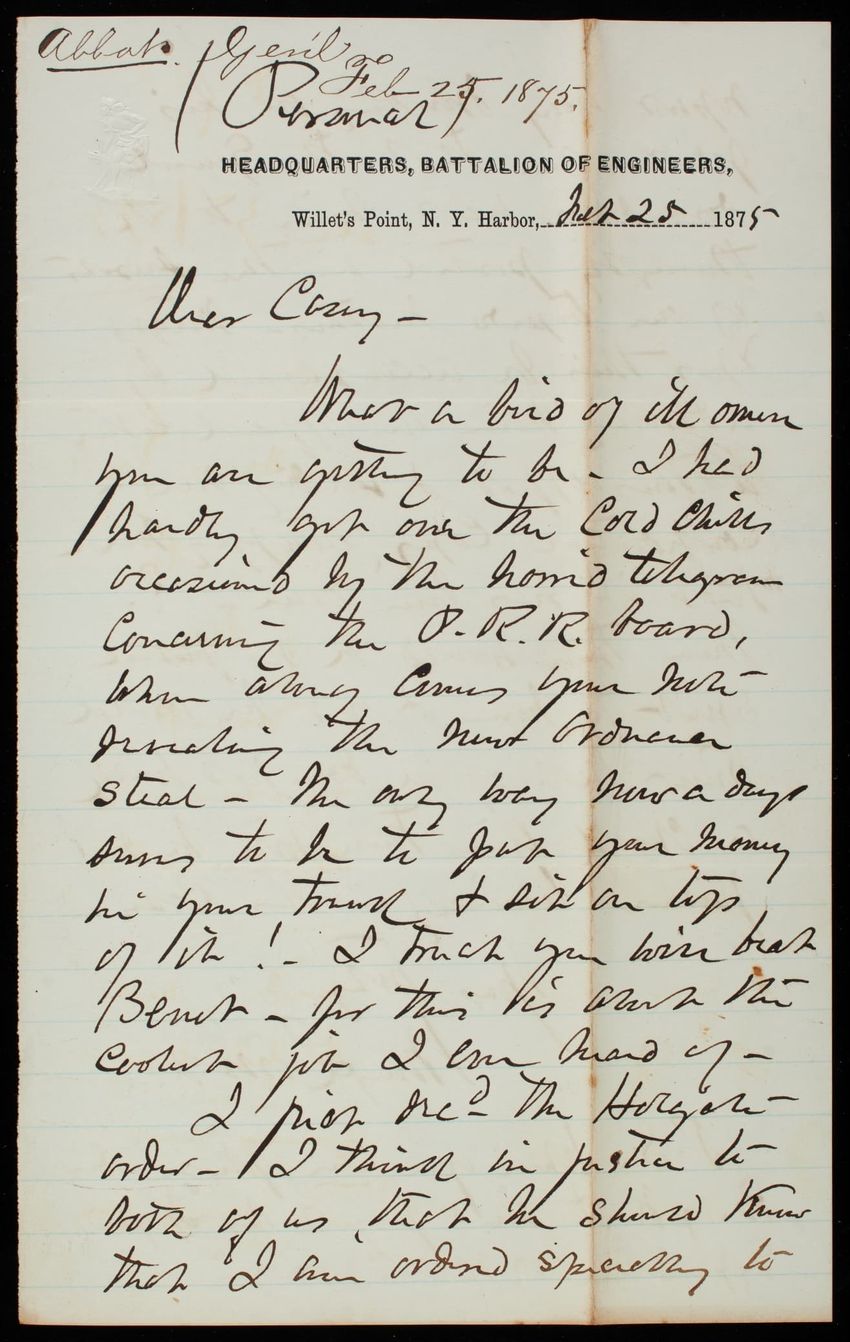 Abbot. Gen'l
Feb 25, 1875.
(Personal)
HEADQUARTERS, BATTALION OF ENGINEERS,
Willet's Point, N. Y. Harbor, Feb 25 1875
Dear Casey –
What a bird of ill omen
you are getting to be – I had
hardly got over the cold chills
occasioned by the horrid telegram
concerning the P. R. R. board,
when along comes your note
revealing the new Ordnance
steal – The only way now a days
seems to be to put your money
in your trunk & sit on top
of it ! – I trust you will beat
Benet – for this is about the
coolest job I ever heard of –
I first recd the Holgate
order – I think in justice to
both of us, that he should know
that I am ordered specially to